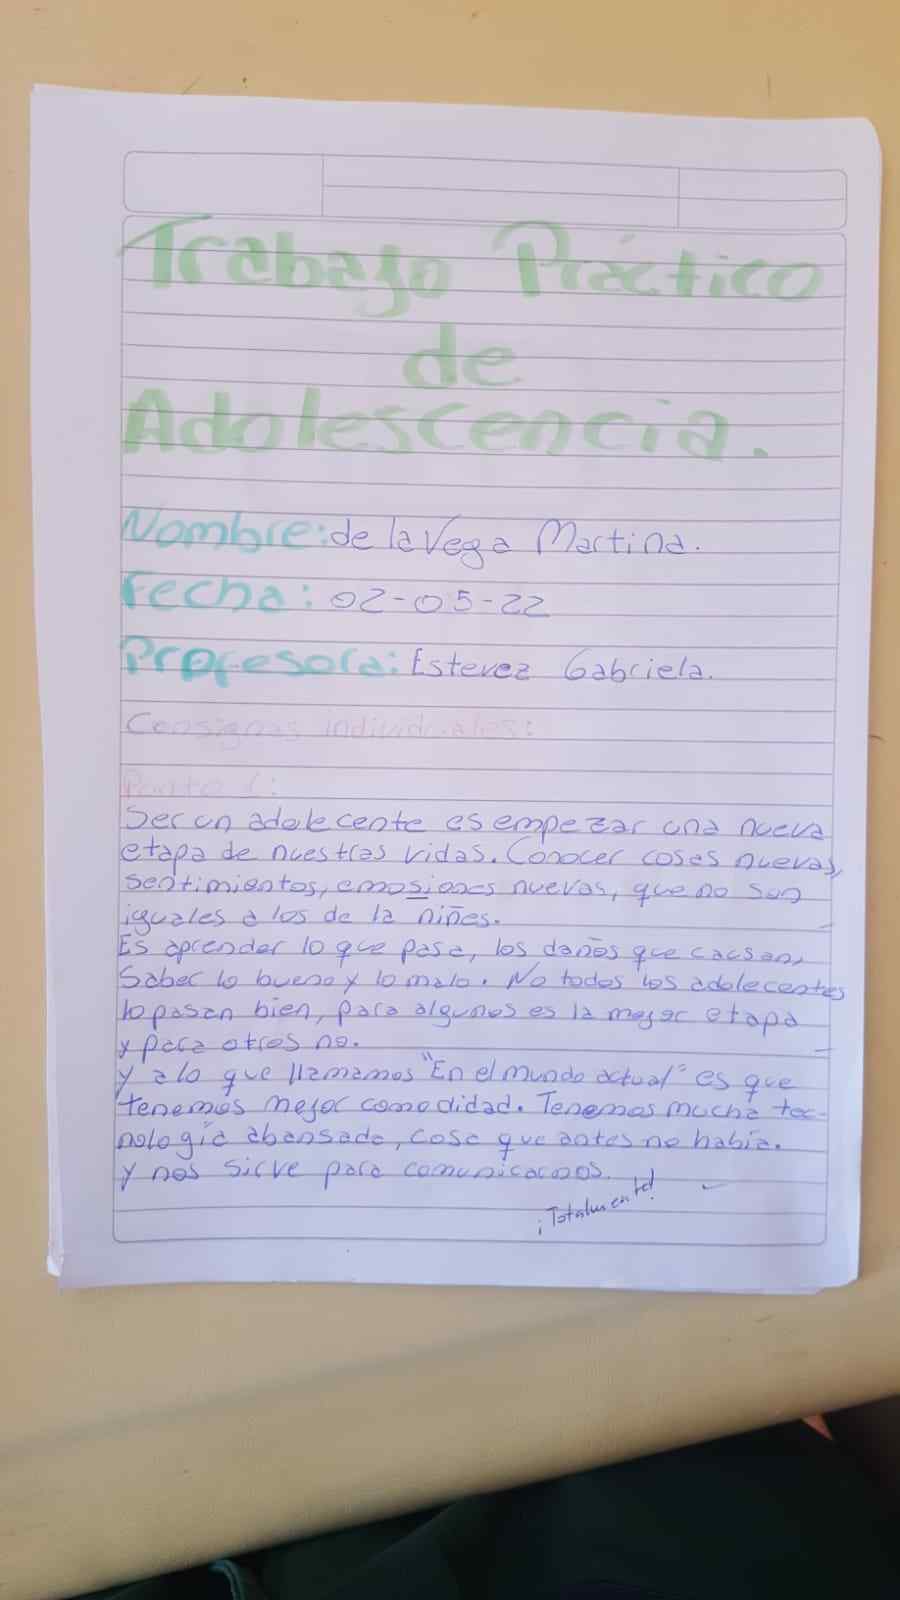 Trabajo Práctico
de
Adolescencia.
Nombre: de la Vega Martina.
Fecha: 02-05-22
Profesora: Estevez Gabriela.
Consignas individuales:
Punto 1:
Ser un adolecente es empezar una nueva
etapa de nuestras vidas. Conocer coses nuevas,
sentimientos, emosiones nuevas, que no son
iguales a los de la niñes.
Es aprender lo que pasa, los daños que causan,
Saber lo bueno y lo malo. No todos los adolecentes
lo pasan bien, para algunos es la mejor etapa
y para otros no.
Y a lo que llamamos "En el mundo actual" es que
tenemos mejor comodidad. Tenemos mucha tec-
nologia abansada, cosa que antes no habia.
Y nos sirve para comunicarnos.
¡Totalmente!